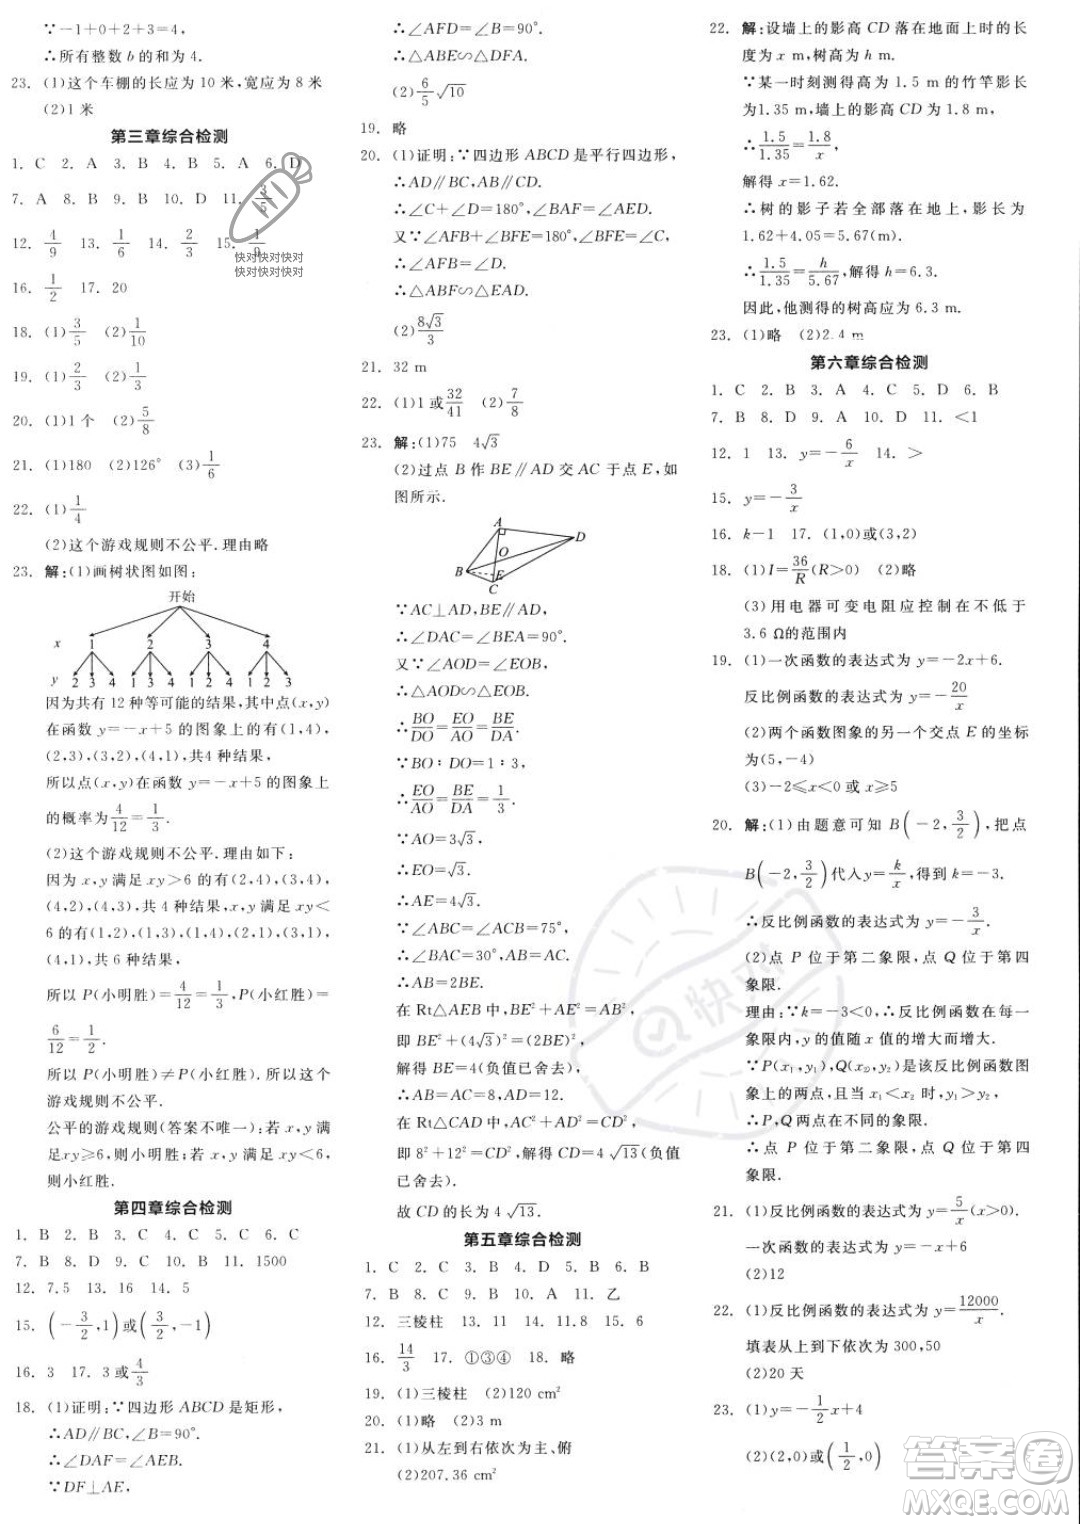 ∵−1+0+2+3=4,
∴所有整数 b 的和为 4.
23. (1)这个车棚的长应为 10 米,宽应为 8 米
(2)1 米
第三章综合检测
1. C 2. A 3. B 4. B 5. A 6. D
7. A 8. B 9. B 10. D 11. 3/5
12. 4/9 13. 1/6 14. 2/3 15. 1/9
16. 1/2 17. 20
18. (1)3/5 (2)1/10
19. (1)2/3 (2)1/3
20. (1)1 个 (2)5/8
21. (1)180 (2)126° (3)1/6
22. (1)1/4
(2)这个游戏规则不公平.理由略
23. 解:(1)画树状图如图:
开始
x 1 2 3 4
y 2 3 4 1 3 4 1 2 4 1 2 3
因为共有 12 种等可能的结果,其中点(x,y)
在函数 y=−x+5 的图象上的有(1,4),
(2,3),(3,2),(4,1),共4 种结果,
所以点(x,y)在函数 y=−x+5 的图象上
的概率为 4/12=1/3.
(2)这个游戏规则不公平.理由如下:
因为 x,y 满足 xy>6 的有(2,4),(3,4),
(4,2),(4,3),共 4 种结果,x,y 满足 xy<
6 的有(1,2),(1,3),(1,4),(2,1),(3,1),
(4,1),共 6 种结果,
所以 P(小明胜)=4/12=1/3,P(小红胜)=
6/12=1/2.
所以 P(小明胜)≠P(小红胜).所以这个
游戏规则不公平.
公平的游戏规则(答案不唯一):若 x,y 满
足xy≥6,则小明胜;若 x,y 满足 xy<6,
则小红胜.
第四章综合检测
1. B 2. B 3. C 4. C 5. C 6. C
7. B 8. D 9. C 10. B 11. 1500
12. 7.5 13. 16 14. 5
15. (−3/2,1)或(3/2,−1)
16. 3 17. 3 或4/3
18. (1)证明:∵四边形 ABCD 是矩形,
∴AD∥BC,∠B=90°.
∴∠DAF=∠AEB.
∵DF⊥AE,
∴∠AFD=∠B=90°.
∴△ABE∽△DFA.
(2)6/5√10
19. 略
20. (1)证明:∵四边形 ABCD 是平行四边形,
∴AD∥BC,AB∥CD.
∴∠C+∠D=180°,∠BAF=∠AED.
又∵∠AFB+∠BFE=180°,∠BFE=∠C,
∴∠AFB=∠D.
∴△AFB∽△EAD.
(2)8√3/3
21. 32 m
22. (1)1 或32/41 (2)7/8
23. 解:(1)75 4√3
(2)过点 B 作 BE∥AD 交 AC 于点 E,如
图所示.
A
D
O
B
E
C
∵AC⊥AD,BE∥AD,
∴∠DAC=∠BEA=90°.
又∵∠AOD=∠EOB,
∴△AOD∽△EOB.
∴BO/DO=EO/AO=BE/DA.
∵BO∶DO=1∶3,
∴EO/AO=BE/DA=1/3.
∵AO=3√3,
∴EO=√3.
∴AE=4√3.
∵∠ABC=∠ACB=75°,
∴∠BAC=30°,AB=AC.
∴AB=2BE.
在 Rt△AEB 中,BE²+AE²=AB²,
即 BE²+(4√3)²=(2BE)².
解得 BE=4(负值已舍去),
∴AB=AC=8,AD=12.
在 Rt△CAD 中,AC²+AD²=CD²,
即 8²+12²=CD²,解得 CD=4√13(负值
已舍去).
故 CD 的长为 4√13.
第五章综合检测
1. C 2. C 3. C 4. D 5. B 6. B
7. B 8. C 9. B 10. A 11. 乙
12. 三棱柱 13. 11 14. 11.8 15. 6
16. 14/3 17. ①③④ 18. 略
19. (1)三棱柱 (2)120 cm²
20. (1)略 (2)3 m
21. (1)从左到右依次为主、俯
(2)207.36 cm²
22. 解:设墙上的影高 CD 落在地面上时的长
度为 x m,树高为 h m.
∵某一时刻测得高为 1.5 m 的竹竿影长
为1.35 m,墙上的影高 CD 为 1.8 m,
∴1.5/1.35=1.8/x,
解得 x=1.62.
∴树的影子若全部落在地上,影长为
1.62+4.05=5.67(m).
∴1.5/1.35=h/5.67,解得 h=6.3.
因此,他测得的树高应为 6.3 m.
23. (1)略 (2)2.4 m
第六章综合检测
1. C 2. B 3. A 4. C 5. D 6. B
7. B 8. D 9. A 10. D 11. <1
12. 1 13. y=−6/x 14. >
15. y=−3/x
16. k−1 17. (1,0)或(3,2)
18. (1)I=36/R(R>0) (2)略
(3)用电器可变电阻应控制在不低于
3.6 Ω的范围内
19. (1)一次函数的表达式为 y=−2x+6.
反比例函数的表达式为 y=−20/x
(2)两个函数图象的另一个交点 E 的坐标
为(5,−4)
(3)−2≤x<0 或x≥5
20. 解:(1)由题意可知 B(−2,3/2),把点
B(−2,3/2)代入 y=k/x,得到 k=−3.
∴反比例函数的表达式为 y=−3/x.
(2)点 P 位于第二象限,点 Q 位于第四
象限.
理由:∵k=−3<0,∴反比例函数在每一
象限内,y 的值随 x 值的增大而增大.
∵P(x₁,y₁),Q(x₂,y₂)是该反比例函数图
象上的两点,且当 x₁<x₂ 时,y₁>y₂,
∴P,Q 两点在不同的象限.
∴点 P 位于第二象限,点 Q 位于第四
象限.
21. (1)反比例函数的表达式为 y=5/x(x>0).
一次函数的表达式为 y=−x+6
(2)12
22. (1)反比例函数的表达式为 y=12000/x.
填表从上到下依次为 300,50
(2)20 天
23. (1)y=−1/2x+4
(2)(2,0)或(1/2,0)
快对快对快对
快对快对快对
快对
答案圈
MXQE.COM